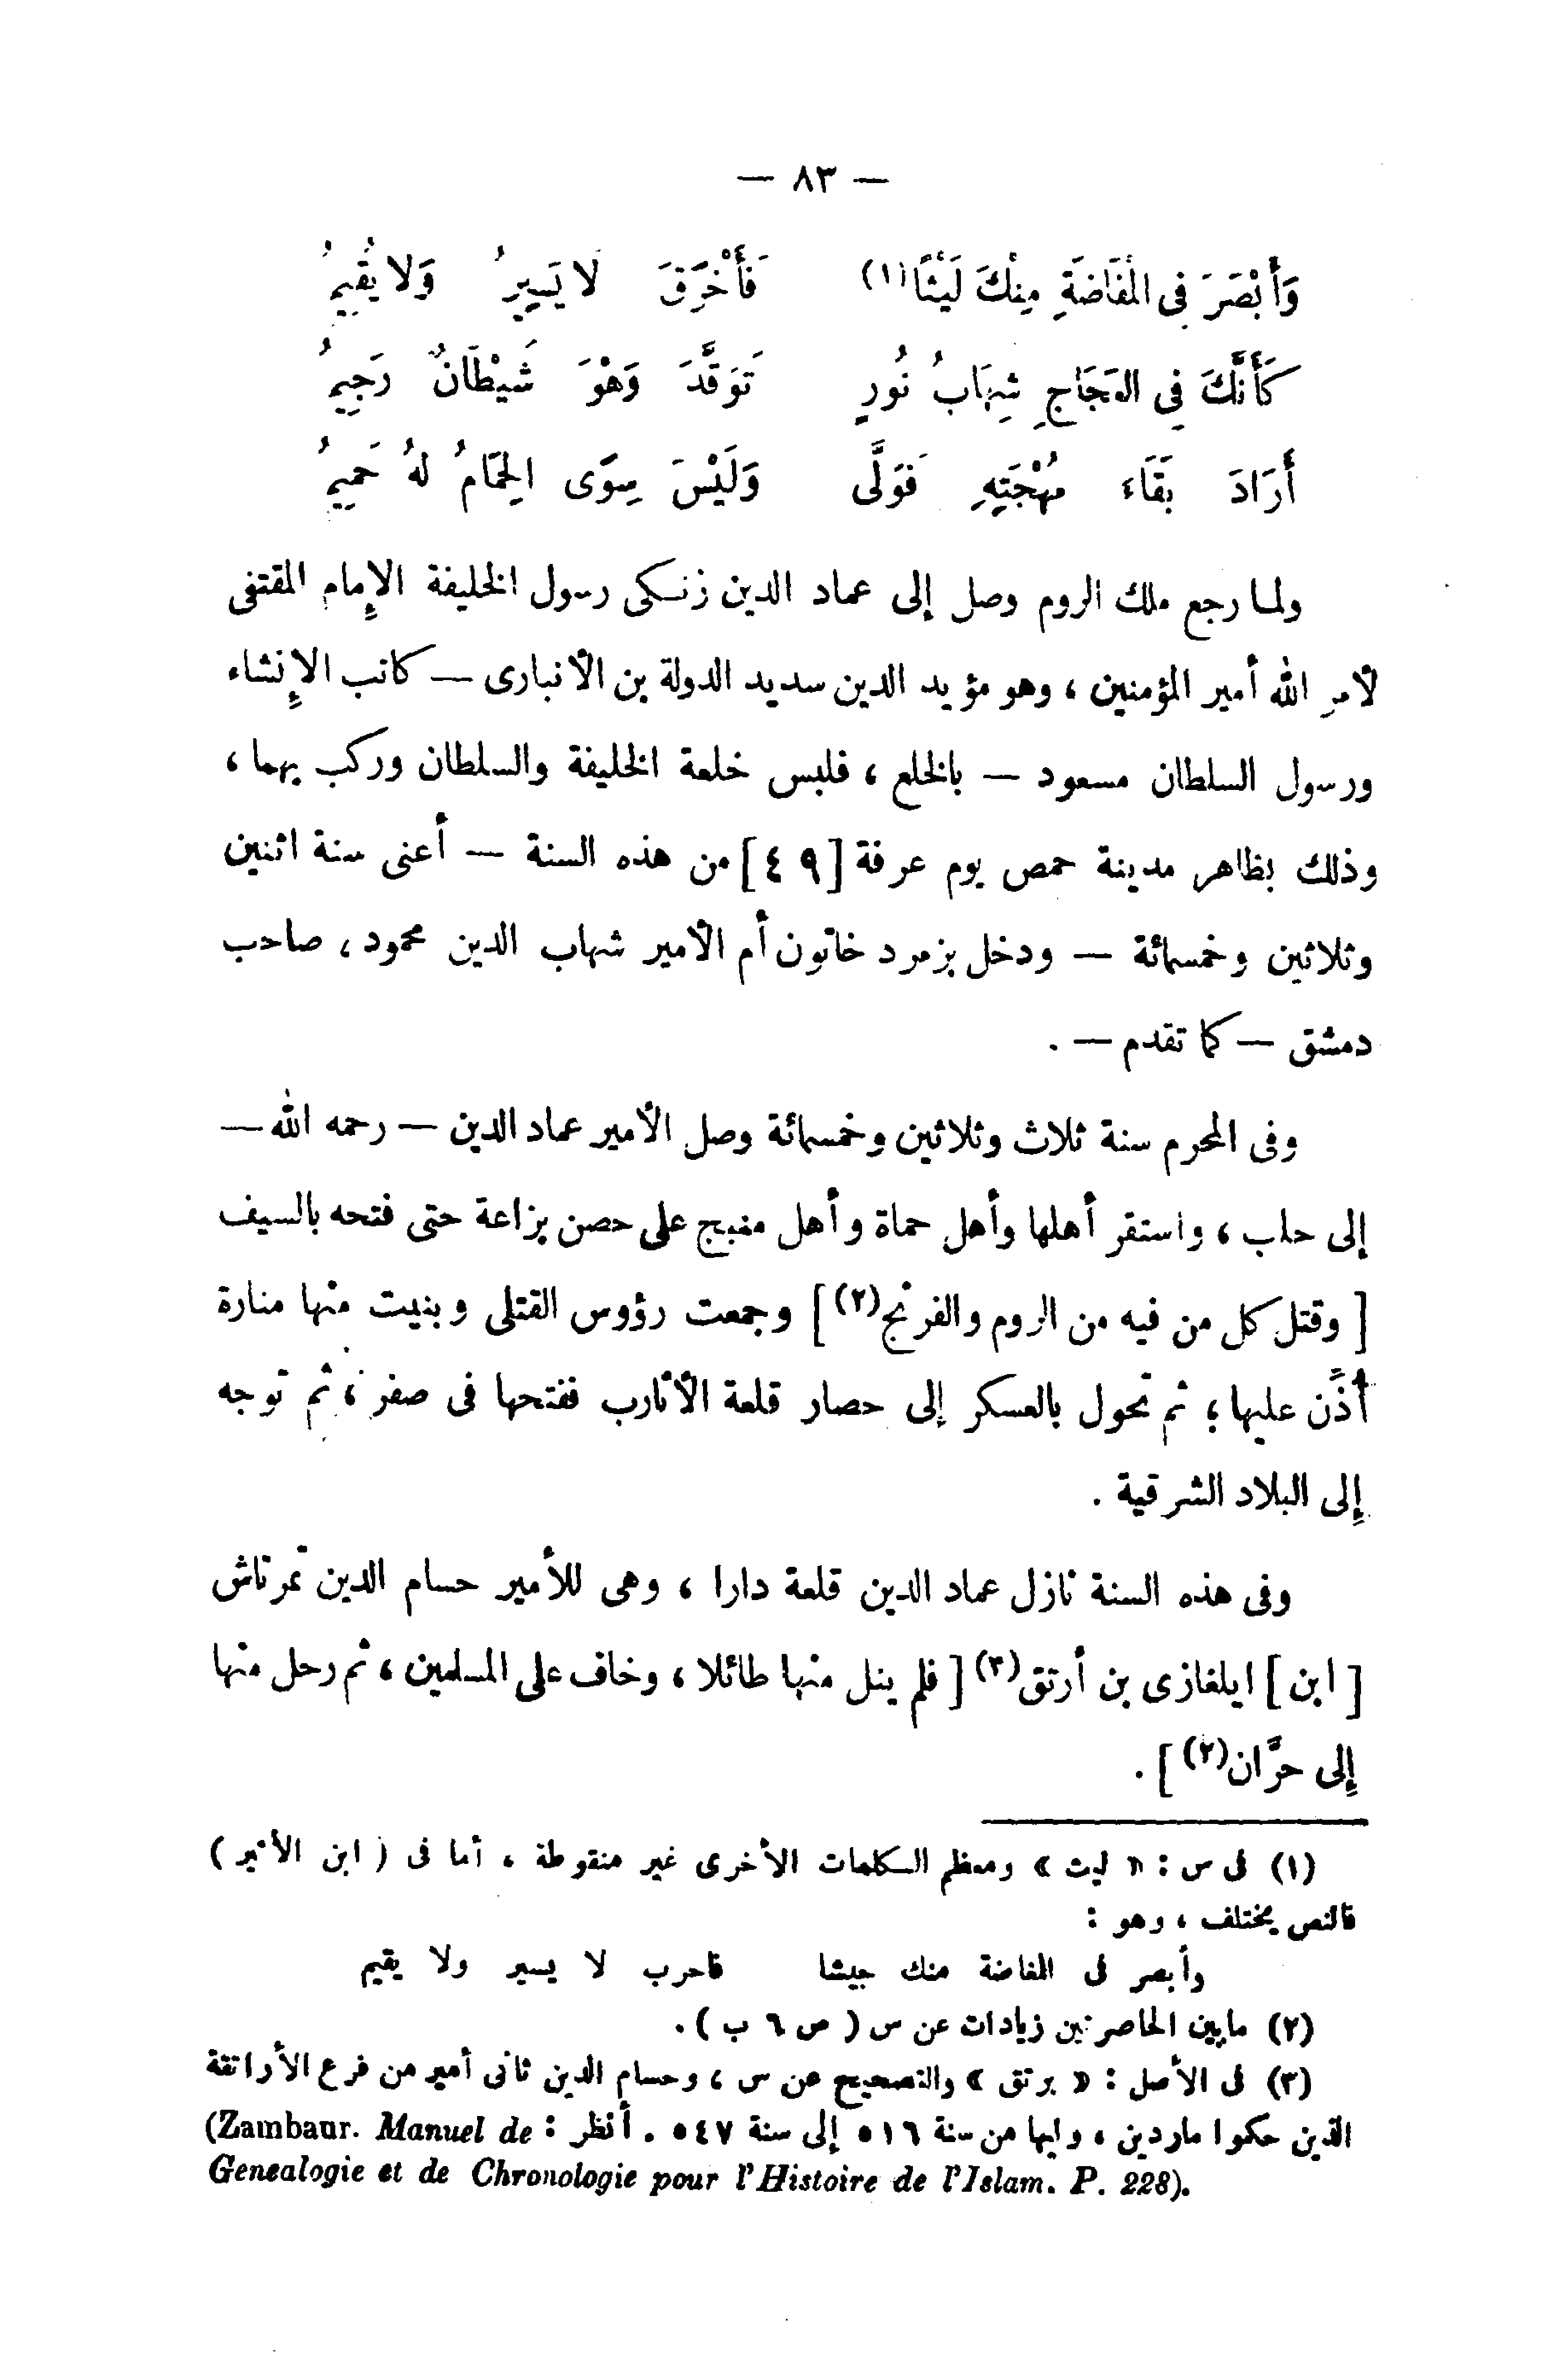 — ٨٣ —
وَأَبْصَرَ فى المُفَاضَةِ مِنكَ لَيْثًا(١) فَأَخْرَقَ لا يَسِيرُ وَلا يُقِيمُ
كَأَنَّكَ فى العَجَاجِ شِهَابُ نُورٍ تَوَقَّدَ وَهْوَ شَيْطَانٌ رَجِيمُ
أَرَادَ بَقَاءَ مُهْجَتِهِ فَوَلَّى وَلَيْسَ سِوَى الحِمَامُ لهُ حَمِيمُ
ولما رجع ملك الروم وصل إلى عماد الدين زنكى رسول الخليفة الإمام المقتفى
لأمر الله أمير المؤمنين ، وهو مؤيد الدين سديد الدولة بن الأنبارى — كاتب الإنشاء
ورسول السلطان مسعود — بالخلع ، فلبس خلعة الخليفة والسلطان وركب بهما ،
وذلك بظاهر مدينة حمص يوم عرفة [٤٩] من هذه السنة — أعنى سنة اثنين
وثلاثين وخمسمائة — ودخل بزمرد خاتون أم الأمير شهاب الدين محمود ، صاحب
دمشق — كما تقدم — .
وفى المحرم سنة ثلاث وثلاثين وخمسمائة وصل الأمير عماد الدين — رحمه الله —
إلى حلب ، واستقر أهلها وأهل حماة وأهل منبج على حصن بزاعة حتى فتحه بالسيف
[ وقتل كل من فيه من الروم والفرنج(٢) ] وجمعت رؤوس القتلى وبنيت منها منارة
أُذِّن عليها ؛ ثم تحول بالعسكر إلى حصار قلعة الأثارب ففتحها فى صفر ، ثم توجه
إلى البلاد الشرقية .
وفى هذه السنة نازل عماد الدين قلعة دارا ، وهى للأمير حسام الدين تمرتاش
[ ابن ] ايلغازى بن أرتق(٣) [ فلم ينل منها طائلا ، وخاف على المسلمين ، ثم رحل منها
إلى حرَّان(٢) ] .
(١) فى س : « ليث » ومعظم الكلمات الأخرى غير منقوطة ، أما فى ( ابن الأثير )
فالنص يختلف ، وهو :
وأبصر فى المفاضة منك جيشا فاحرب لا يسير ولا يقيم
(٢) مابين الحاصرتين زيادات عن س ( ص ٦ ب ) .
(٣) فى الأصل : « برتق » والتصحيح عن س ، وحسام الدين ثانى أمير من فرع الأراتقة
الذين حكموا ماردين ، وليها من سنة ٥١٦ إلى سنة ٥٤٧ . أنظر : (Zambaur. Manuel de
Genealogie et de Chronologie pour l'Histoire de l'Islam. P. 228).